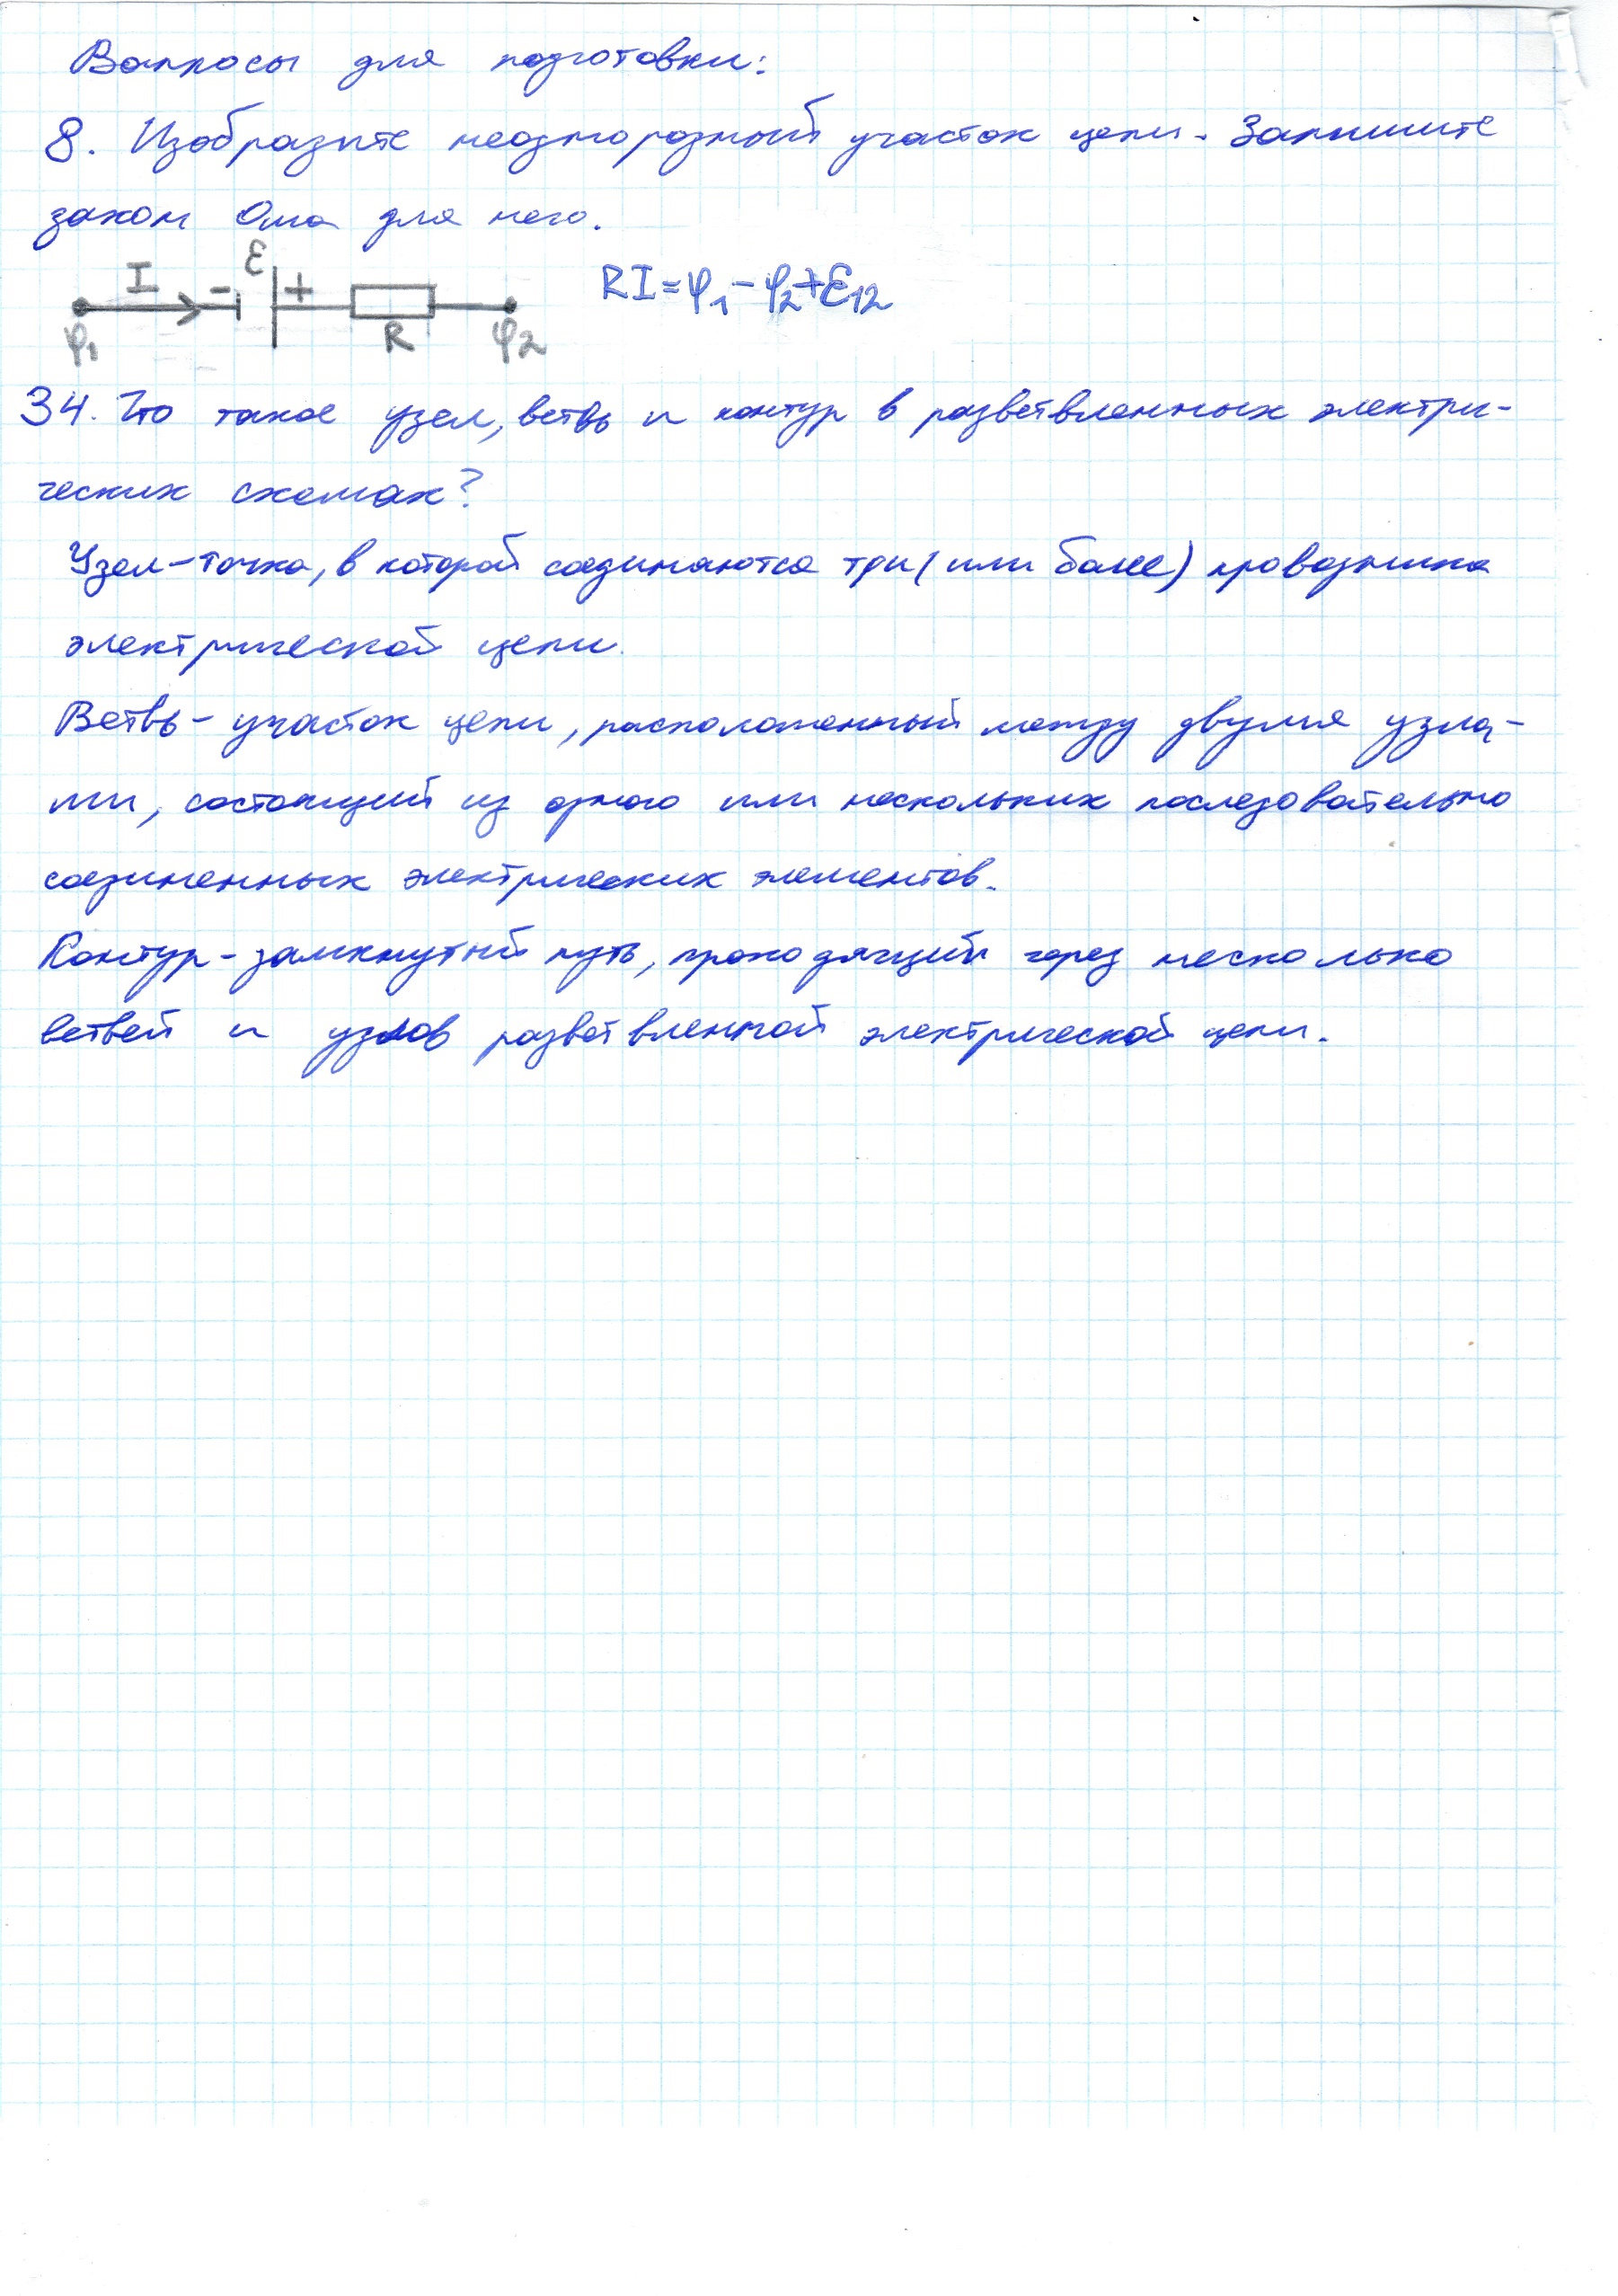 Вопросы для подготовки:
8. Изобразите неоднородный участок цепи. Запишите
закон Ома для него.
I - ε + R φ1 φ2 RI = φ1 - φ2 + ε12
34. Что такое узел, ветвь и контур в разветвленных электри-
ческих схемах?
Узел - точка, в которой соединяются три (или более) проводника
электрической цепи.
Ветвь - участок цепи, расположенный между двумя узла-
ми, состоящий из одного или нескольких последовательно
соединенных электрических элементов.
Контур - замкнутый путь, проходящий через несколько
ветвей и узлов разветвленной электрической цепи.